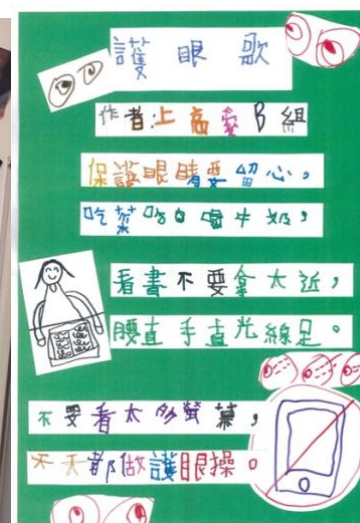 護眼歌
作者:上高愛B組
保護眼睛要留心，
吃菜吃喝牛奶，
看書不要拿太近，
腰直手直光線足。
不要看太多螢幕，
天天都做護眼操。